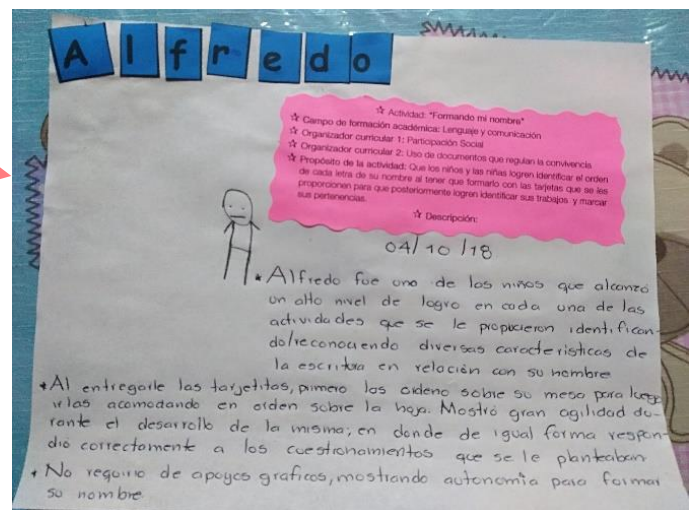 Alfredo
☆ Actividad: "Formando mi nombre"
☆ Campo de formación académica: Lenguaje y comunicación
☆ Organizador curricular 1: Participación Social
☆ Organizador curricular 2: Uso de documentos que regulan la convivencia
☆ Propósito de la actividad: Que los niños y las niñas logren identificar el orden
de cada letra de su nombre al tener que formarlo con las tarjetas que se les
proporcionen para que posteriormente logren identificar sus trabajos y marcar
sus pertenencias.
☆ Descripción:
04/10/18
*Alfredo fue uno de los niños que alcanzó
un alto nivel de logro en cada una de las
actividades que se le propusieron identifican-
do/reconociendo diversas caracteristicas de
la escritura en relación con su nombre
*Al entregarle las tarjetitas, primero las ordeno sobre su mesa para luego
irlas acomodando en orden sobre la hoja. Mostró gran agilidad du-
rante el desarrollo de la misma; en donde de igual forma respon-
dió correctamente a los cuestionamientos que se le planteaban
* No requirio de apoyos graficos, mostrando autonomía para formar
su nombre